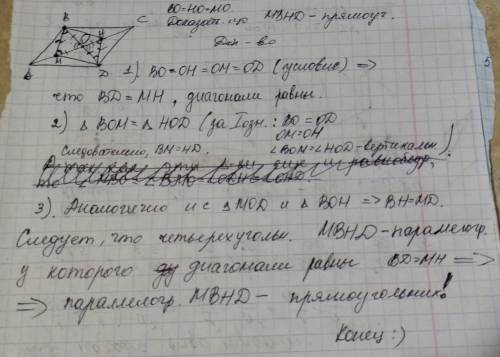 B
C
BO=HO=MO.
Доказать, что MBHD - прямоуг.
Док-во
A
D
1). BO=OH=OM=OD (условие) =>
что BD=MH, диагонали равны.
2) △BOM=△HOD (за I озн.: BO=OD
OM=OH
Следовательно, BM=HD. ∠BOM=∠HOD-вертикален)
3). Аналогично и с △MOD и △BOH => BH=MD.
Следует, что четырехугольн. MBHD-паралелогр.
у которого диагонали равны BD=MH =>
=> параллелогр. MBHD- прямоугольник!
Конец:)